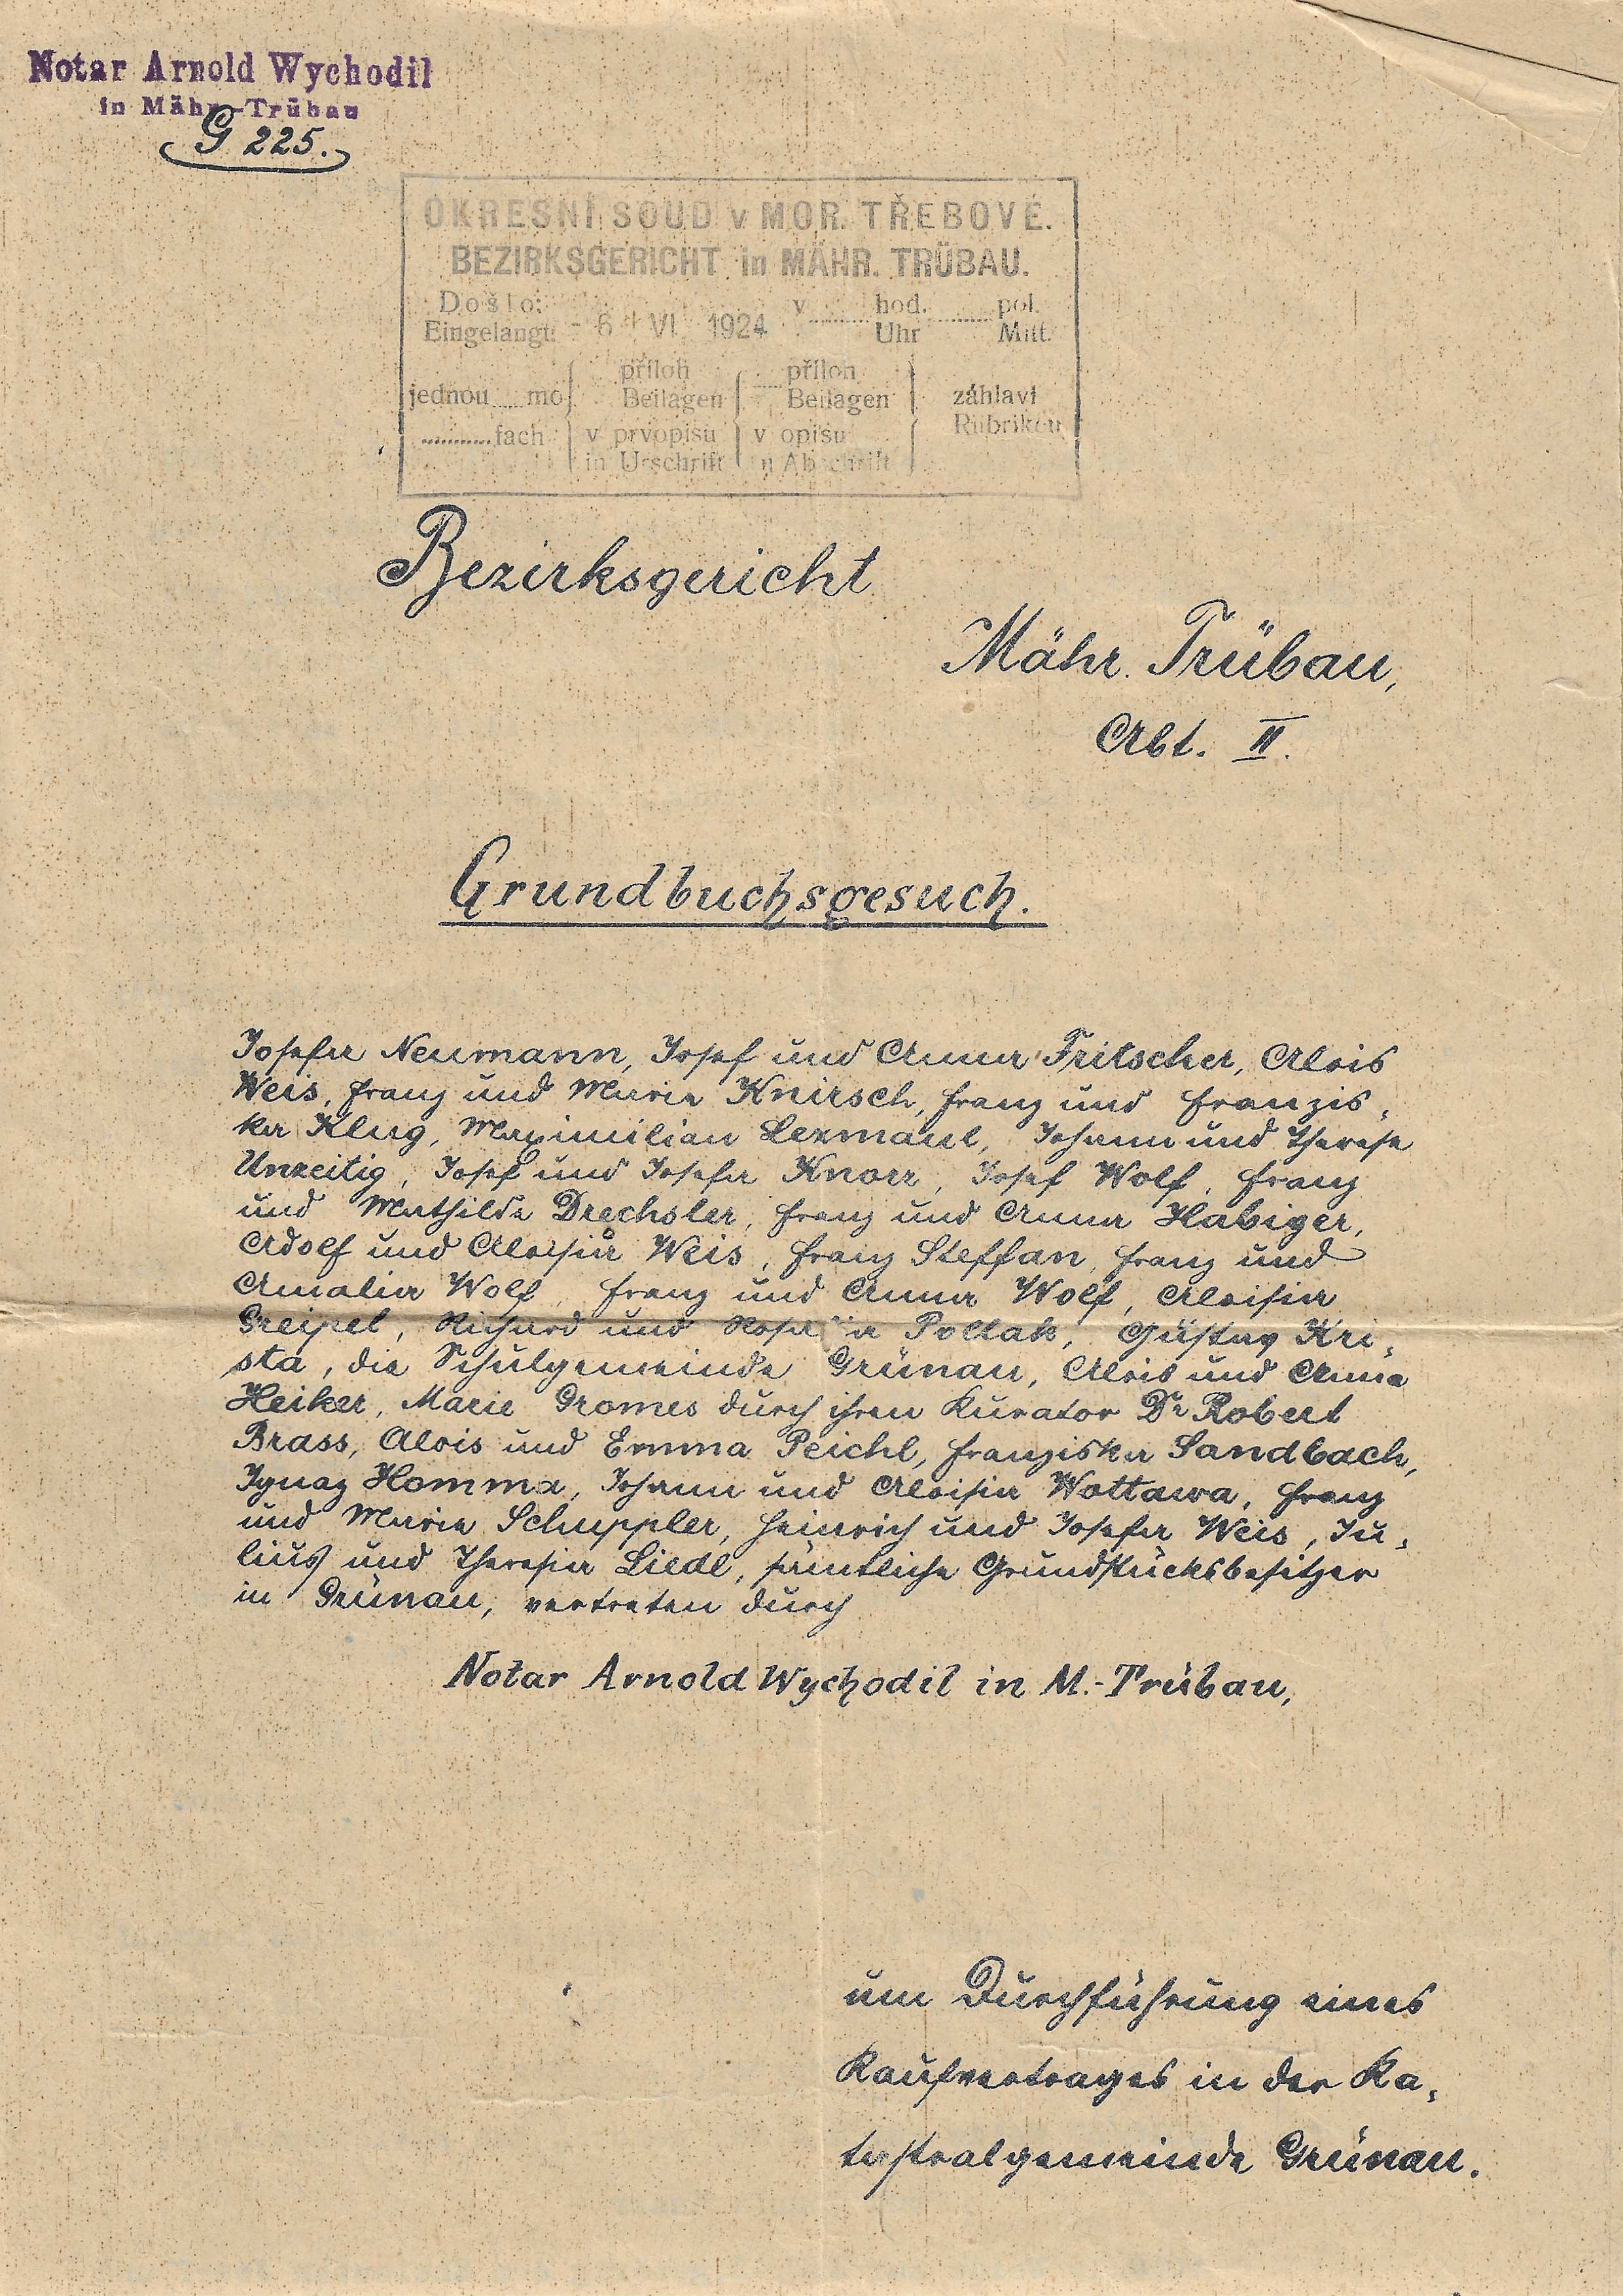 Notar Arnold Wychodil
in Mähr.-Trübau
G 225.
OKRESNÍ SOUD v MOR. TŘEBOVĚ.
BEZIRKSGERICHT in MÄHR. TRÜBAU.
Došlo: v hod. pol.
Eingelangt: - 6. VI. 1924 Uhr Mitt.
příloh příloh
jednou mo Beilagen Beilagen záhlaví
fach v prvopisu v opisu Rubriken
in Urschrift in Abschrift
Bezirksgericht
Mähr. Trübau,
Abt. II.
Grundbuchsgesuch.
Josefa Neumann, Josef und Anna Fritscher, Alois
Weis, Franz und Maria Knirsch, Franz und Franzis,
ka Klug, Maximilian Lexmaul, Johann und Therese
Unzeitig, Josef und Josefa Knorr, Josef Wolf, Franz
und Mathilde Drechsler, Franz und Anna Habiger,
Adolf und Aloisia Weis, Franz Steffan, Franz und
Amalia Wolf, Franz und Anna Wolf, Aloisia
Greipel, Richard und Pollak, Gustav Kri,
sta, die Schulgemeinde Grünau, Alois und Anna
Heiker, Marie Gromes durch ihren Kurator Dr Robert
Brass, Alois und Emma Peichl, Franziska Sandbach,
Ignaz Homma, Johann und Aloisia Wottawa, Franz
und Maria Schuppler, Heinrich und Josefa Weis, Ju,
lius und Theresia Liedl, sämtliche Grundstücksbesitzer
in Grünau, vertreten durch
Notar Arnold Wychodil in M.-Trübau,
um Durchführung eines
Kaufvertrages in der Ka,
tastralgemeinde Grünau.